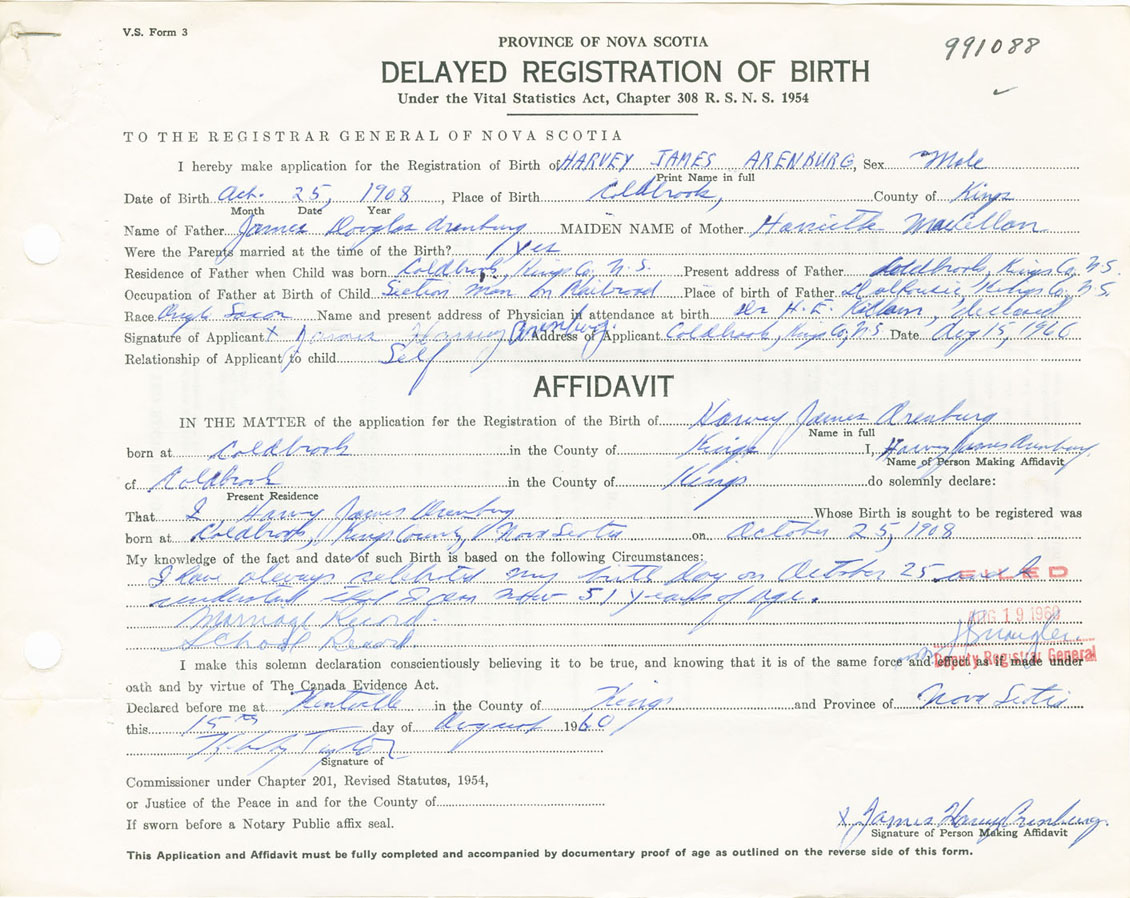 V.S. Form 3
991088
PROVINCE OF NOVA SCOTIA
DELAYED REGISTRATION OF BIRTH
Under the Vital Statistics Act, Chapter 308 R. S. N. S. 1954
TO THE REGISTRAR GENERAL OF NOVA SCOTIA
I hereby make application for the Registration of Birth of HARVEY JAMES ARENBURG, Sex Male
Print Name in full
Date of Birth Oct. 25, 1908, Place of Birth Coldbrook, County of Kings
Month Date Year
Name of Father James Douglas Arenburg MAIDEN NAME of Mother Harriette
Were the Parents married at the time of the Birth? Yes
Residence of Father when Child was born Coldbrook, Kings Co, N. S. Present address of Father Coldbrook, Kings Co, N. S.
Occupation of Father at Birth of Child Section Man on Railroad Place of birth of Father Dalhousie, Kings Co, N. S.
Race Anglo Saxon Name and present address of Physician in attendance at birth Dr H. E. Killam,
Signature of Applicant X James Harvey Arenburg Address of Applicant Coldbrook, Kings Co, N.S. Date Aug 15, 1960
Relationship of Applicant to child Self
AFFIDAVIT
IN THE MATTER of the application for the Registration of the Birth of Harvey James Arenburg
Name in full
born at Coldbrook in the County of Kings I, Harvey James Arenburg
Name of Person Making Affidavit
of Coldbrook in the County of Kings do solemnly declare:
Present Residence
That I Harvey James Arenburg Whose Birth is sought to be registered was
born at Coldbrook, Kings County, Nova Scotia on October 25, 1908
My knowledge of the fact and date of such Birth is based on the following Circumstances:
I have always celebrated my birth day on October 25 and
FILED
understand that I am now 51 years of age.
Marriage Record.
AUG 19 1960
School Record.
I make this solemn declaration conscientiously believing it to be true, and knowing that it is of the same force and effect as if made under
Deputy Registrar General
oath and by virtue of The Canada Evidence Act.
Declared before me at Kentville in the County of Kings and Province of Nova Scotia
this 15th day of August 1960
Signature of
Commissioner under Chapter 201, Revised Statutes, 1954,
or Justice of the Peace in and for the County of
If sworn before a Notary Public affix seal.
X James Harvey Arenburg
Signature of Person Making Affidavit
This Application and Affidavit must be fully completed and accompanied by documentary proof of age as outlined on the reverse side of this form.